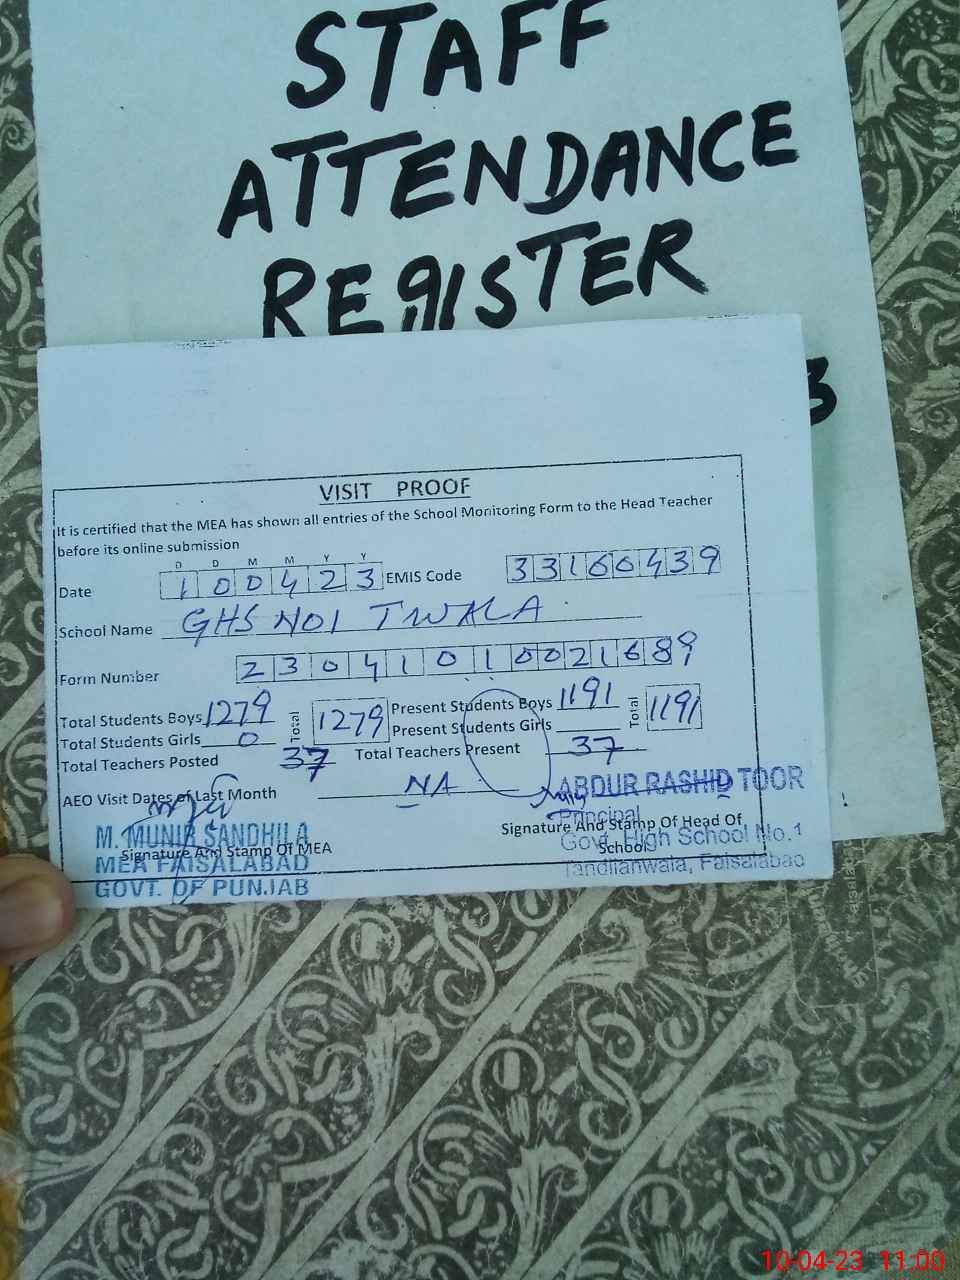 STAFF
ATTENDANCE
REGISTER
3
VISIT PROOF
It is certified that the MEA has shown all entries of the School Monitoring Form to the Head Teacher
before its online submission
D D M M Y Y
Date 100423 EMIS Code 33160439
School Name GHS NO1 TWALA
Form Number 23041010021689
Total Students Boys 1279 Total 1279 Present Students Boys 1191 Total 1191
Total Students Girls 0 Present Students Girls
Total Teachers Posted 37 Total Teachers Present 37
AEO Visit Dates of Last Month NA
ABDUR RASHID TOOR
Principal
Signature And Stamp Of Head Of
School
Govt. High School No.1
Tandlianwala, Faisalabad
M. MUNIR SANDHILA
Signature And Stamp Of MEA
MEA FAISALABAD
GOVT. OF PUNJAB
10-04-23 11:00